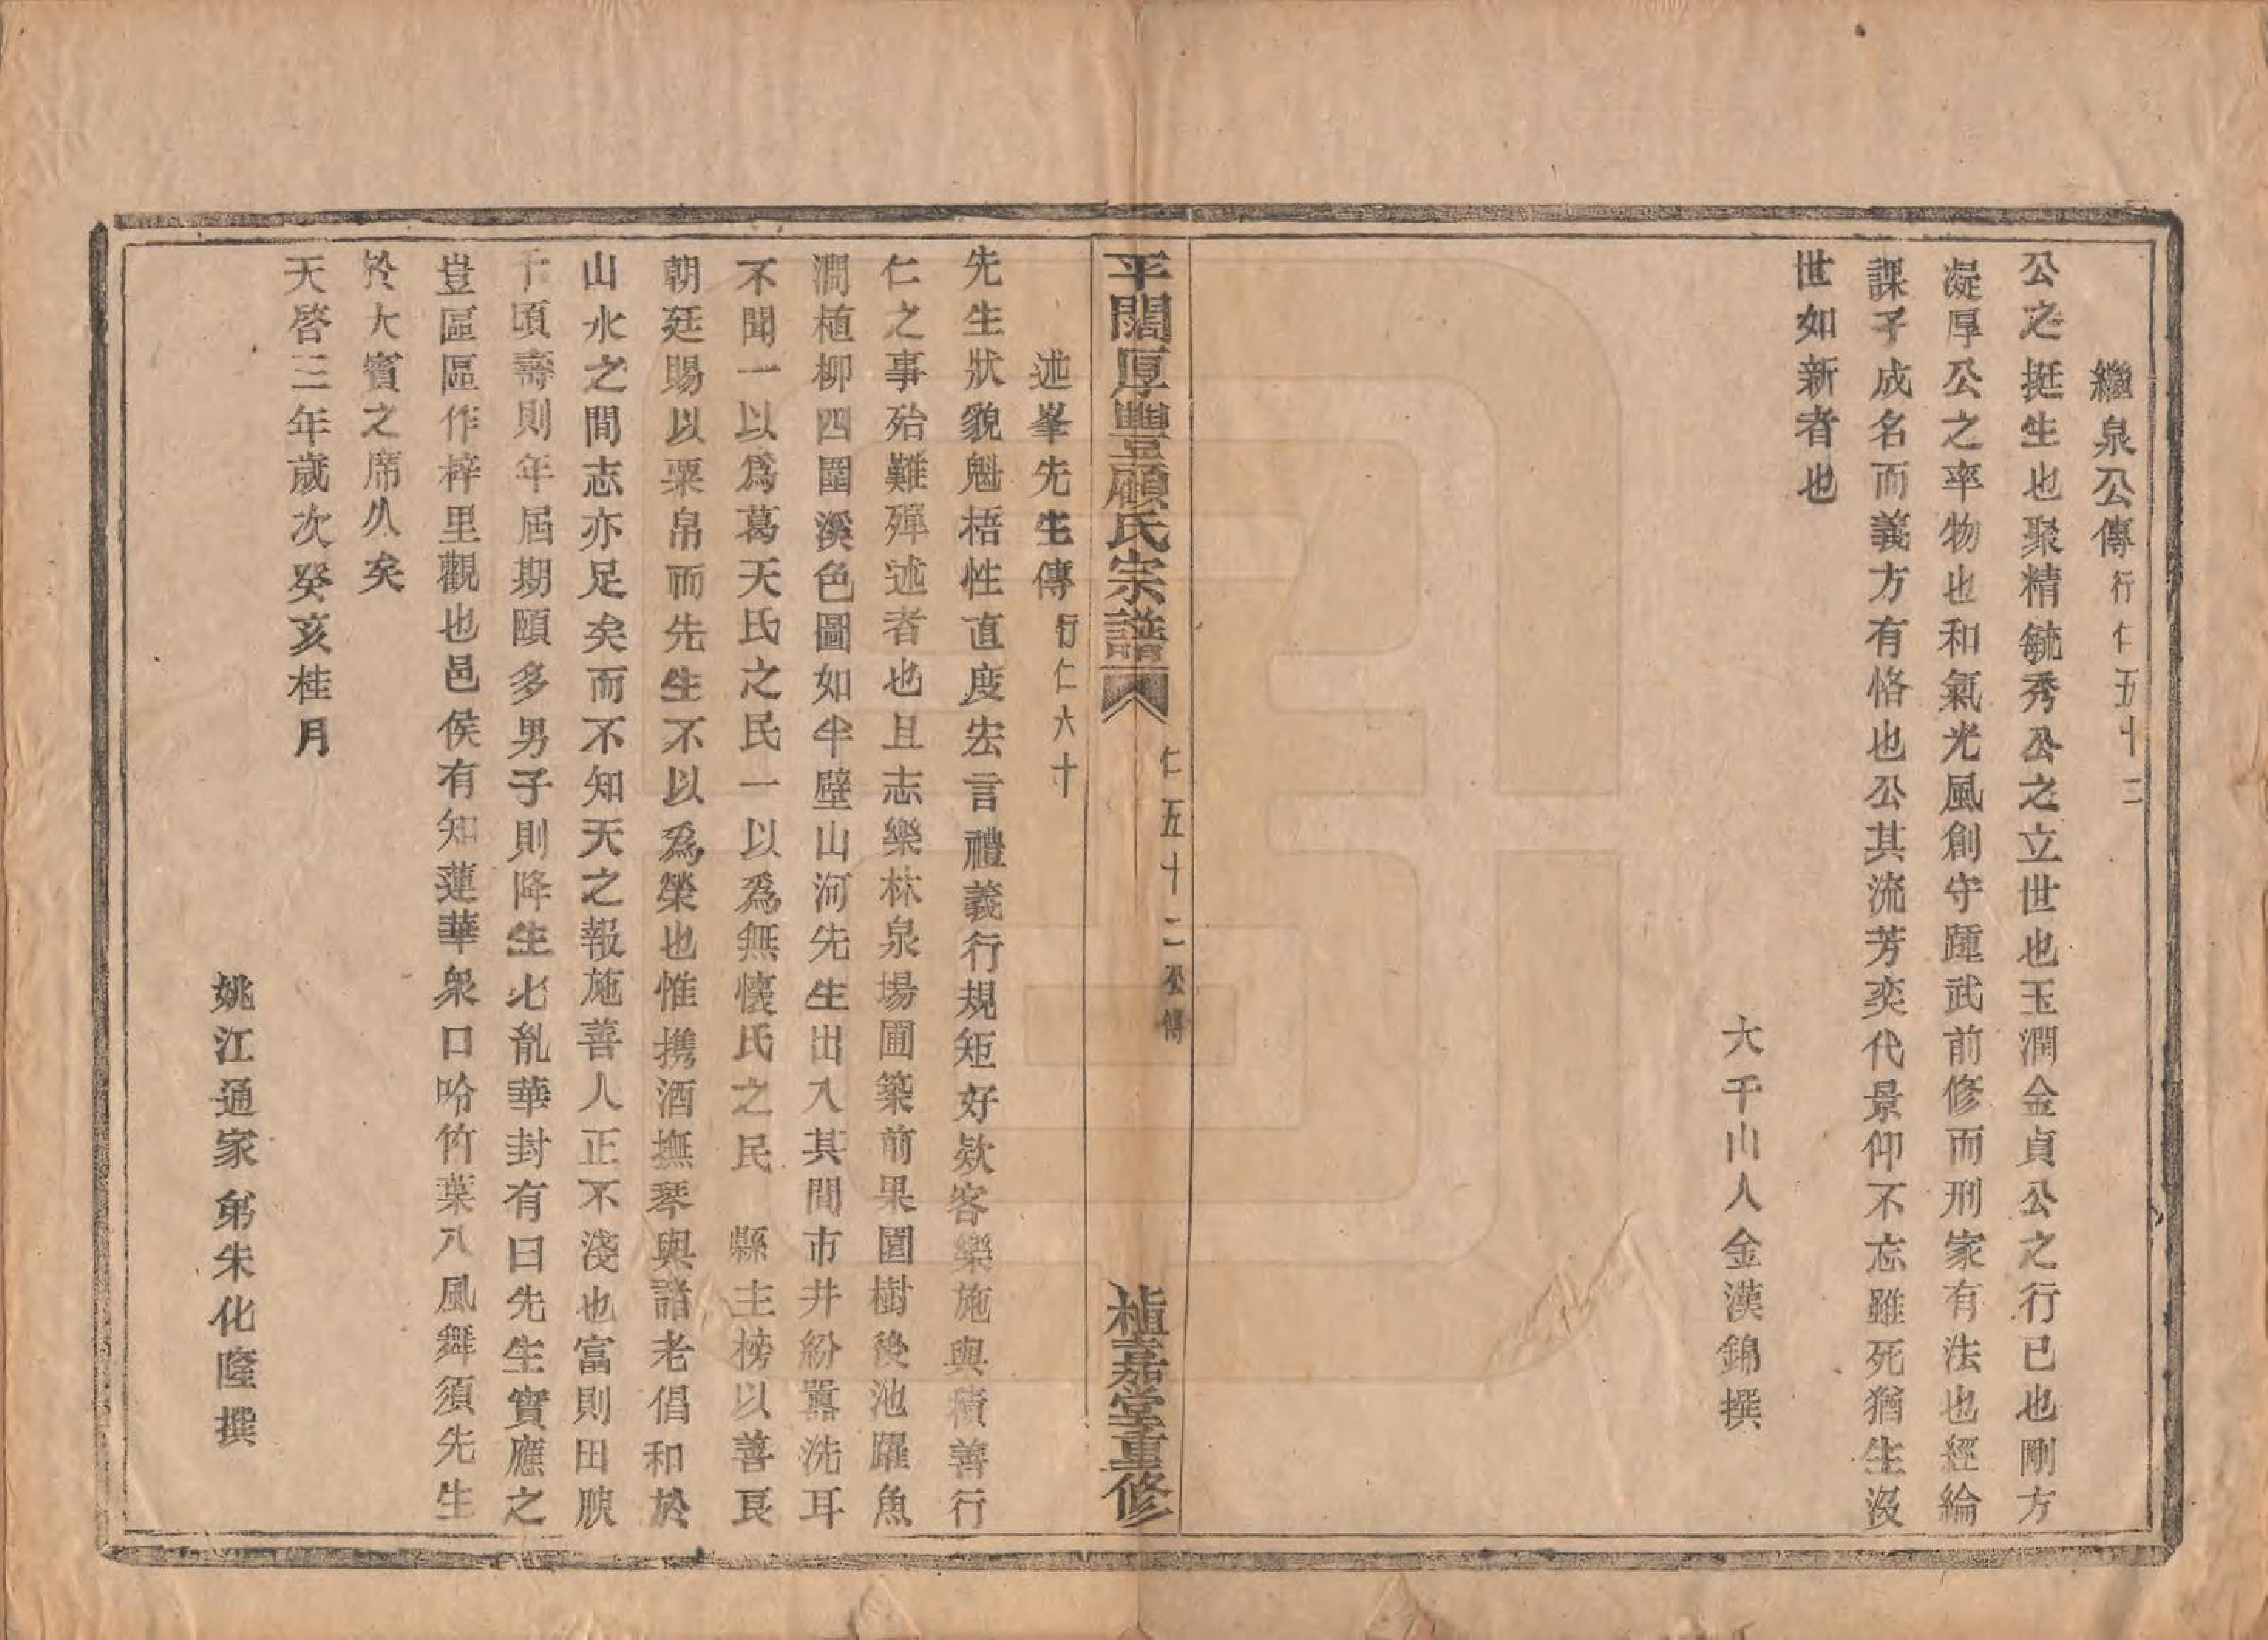 繼泉公傳行仁五十二
公之挺生也聚精毓秀公之立世也玉潤金貞公之行已也剛方
凝厚公之率物也和氣光風創守踵武前修而刑家有法也經綸
課子成名而義方有恪也公其流芳奕代景仰不忘雖死猶生沒
世如新者也
大千山人金漢錦撰
平闊厚豐顧氏宗譜
仁五十二公傳
植嘉堂重修
述峯先生傳行仁六十
先生狀貌魁梧性直度宏言禮義行規矩好欵客樂施與積善行
仁之事殆難殫述者也且志樂林泉場圃築前果園樹後池躍魚
澗植柳四圍溪色圖如半壁山河先生出入其間市井紛囂洗耳
不聞一以爲葛天氏之民一以爲無懷氏之民 縣主榜以善良
朝廷賜以粟帛而先生不以爲榮也惟携酒撫琴與諸老倡和於
山水之間志亦足矣而不知天之報施善人正不淺也富則田腴
千頃壽則年屆期頤多男子則降生七胤華封有曰先生實應之
豈區區作梓里觀也邑侯有知蓮華衆口吟竹葉八風舞須先生
於大賓之席久矣
天啓三年歲次癸亥桂月
姚江通家弟朱化隆撰